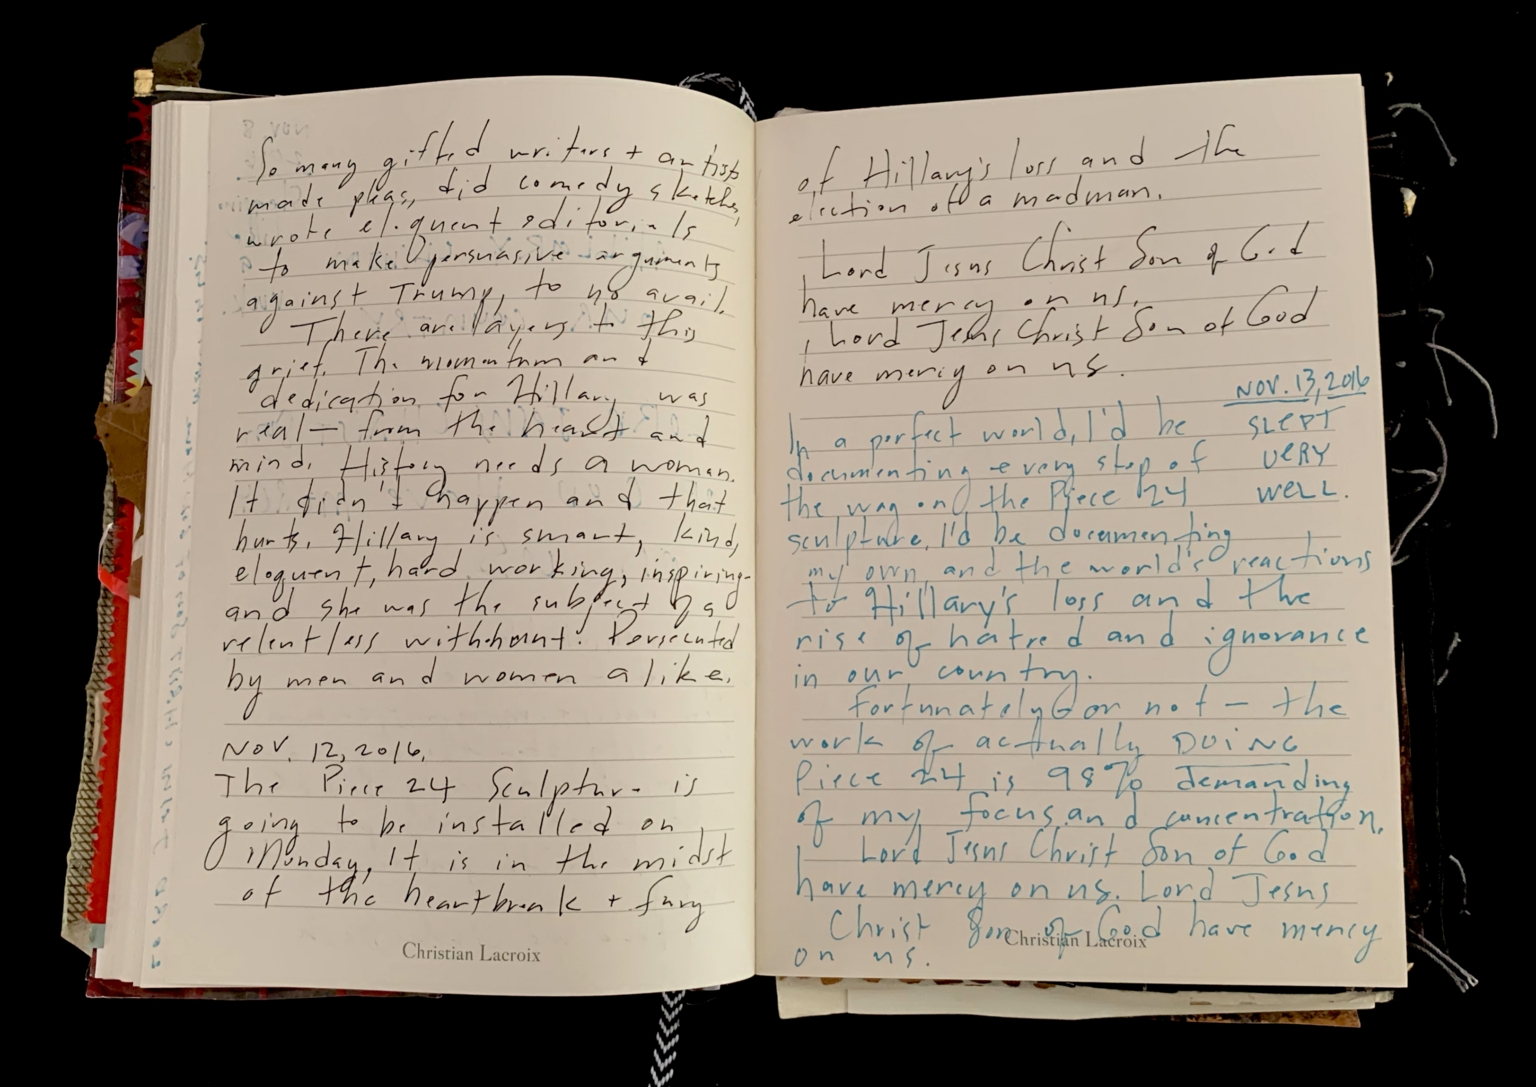 So many gifted writers + artists
made pleas, did comedy sketches,
wrote eloquent editorials
to make persuasive arguments
against Trump, to no avail.
There are layers to this
grief. The momentum and
dedication for Hillary was
real — from the heart and
mind. History needs a woman.
It didn't happen and that
hurts. Hillary is smart, kind,
eloquent, hard working, inspiring-
and she was the subject of a
relentless witch-hunt. Persecuted
by men and women alike.
NOV. 12, 2016.
The Piece 24 Sculpture is
going to be installed on
Monday. It is in the midst
of the heartbreak + fury
Christian Lacroix
of Hillary's loss and the
election of a madman.
Lord Jesus Christ Son of God
have mercy on us.
Lord Jesus Christ Son of God
have mercy on us.
NOV. 13, 2016
SLEPT
VERY
WELL.
In a perfect world, I'd be
documenting every step of
the way on the Piece 24
sculpture. I'd be documenting
my own, and the world's reactions
to Hillary's loss and the
rise of hatred and ignorance
in our country.
Fortunately or not — the
work of actually DOING
Piece 24 is 98% demanding
of my focus and concentration.
Lord Jesus Christ Son of God
have mercy on us. Lord Jesus
Christ Son of God have mercy
on us.
Christian Lacroix